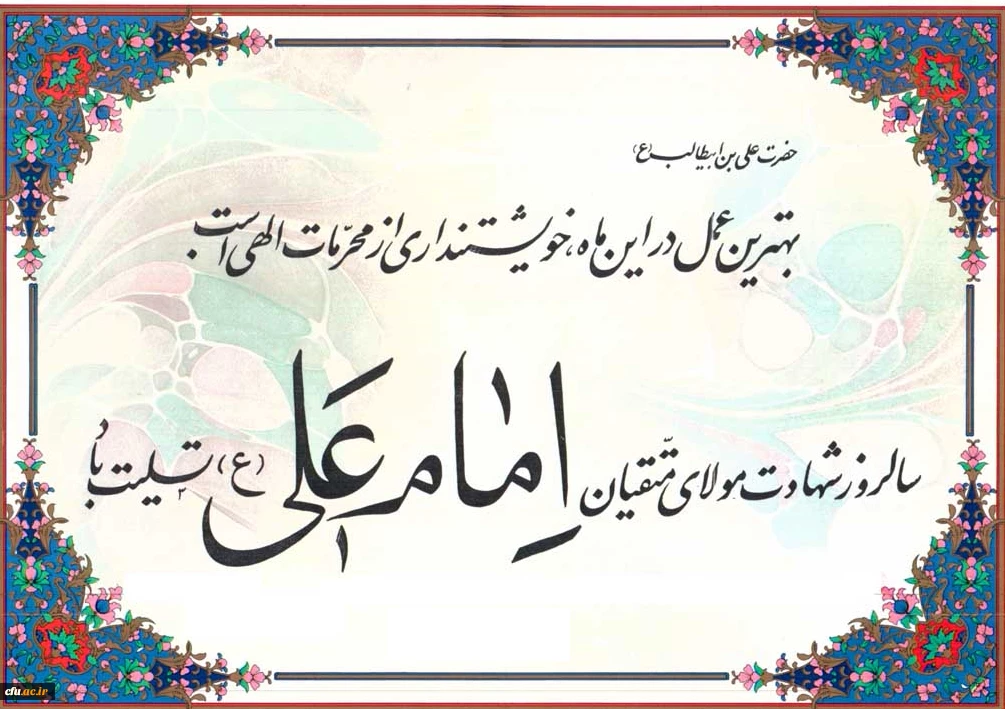 حضرت علی بن ابیطالب (ع)
بهترین عمل در این ماه، خویشتنداری از محرّمات الهی است
سالروز شهادت مولای متّقیان اِمام عَلی (ع) تسلیت باد
cfu.ac.ir